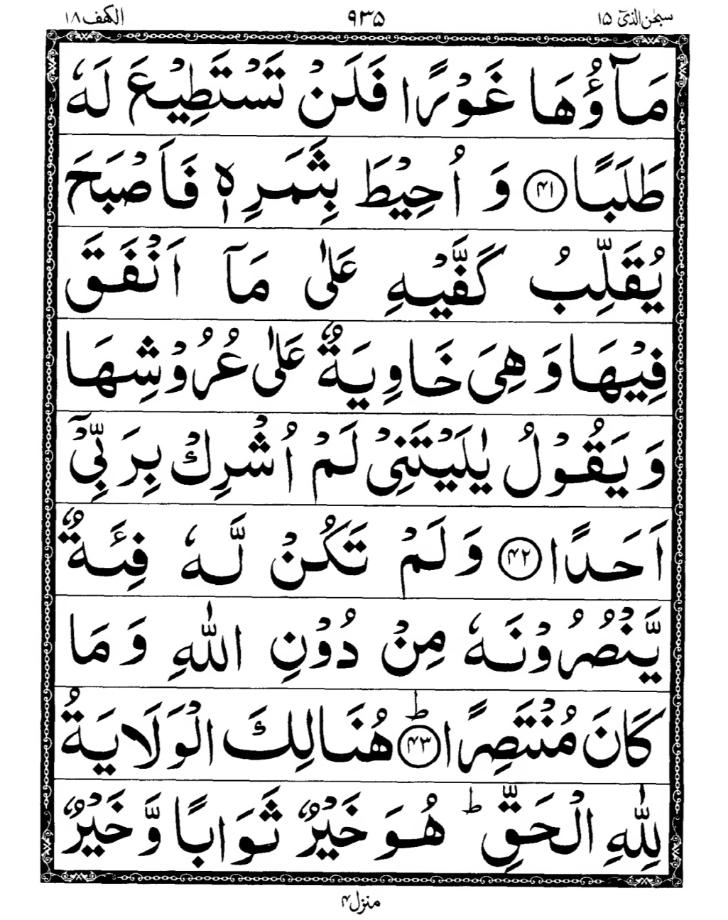 سبحٰن الذیٓ ۱۵ ۹۳۵ الکهف ۱۸
مَآؤُهَا غَوْرًا فَلَنْ تَسْتَطِيْعَ لَهٗ
طَلَبًا ﴿۴۱﴾ وَ اُحِيْطَ بِثَمَرِهٖ فَاَصْبَحَ
يُقَلِّبُ كَفَّيْهِ عَلٰى مَآ اَنْفَقَ
فِيْهَا وَ هِيَ خَاوِيَةٌ عَلٰى عُرُوْشِهَا
وَ يَقُوْلُ يٰلَيْتَنِيْ لَمْ اُشْرِكْ بِرَبِّيْٓ
اَحَدًا ﴿۴۲﴾ وَ لَمْ تَكُنْ لَّهٗ فِئَةٌ
يَّنْصُرُوْنَهٗ مِنْ دُوْنِ اللّٰهِ وَ مَا
كَانَ مُنْتَصِرًا ﴿۴۳﴾ؕ هُنَالِكَ الْوَلَايَةُ
لِلّٰهِ الْحَقِّ ؕ هُوَ خَيْرٌ ثَوَابًا وَّ خَيْرٌ
منزل ۴